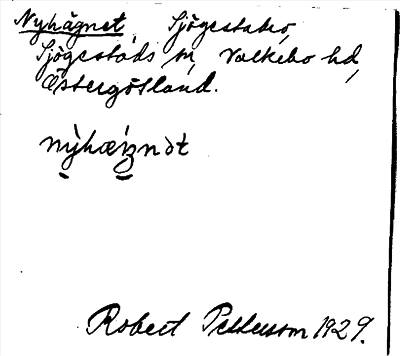 Nyhägnet, Sjögestabro,
Sjögestads sn, Valkebo hd,
Östergötland.
nỳhæi̯gnət
Robert Pettersson 1929.